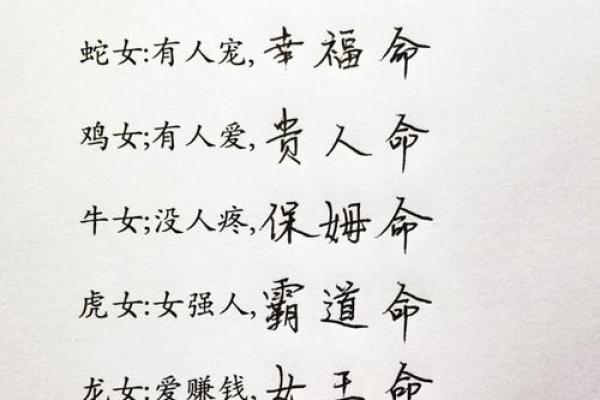 蛇女:有人宠,幸福命
鸡女;有人爱,贵人命
牛女;没人疼,保姆命
虎女:女强人,霸道命
龙女:爱赚钱,女王命